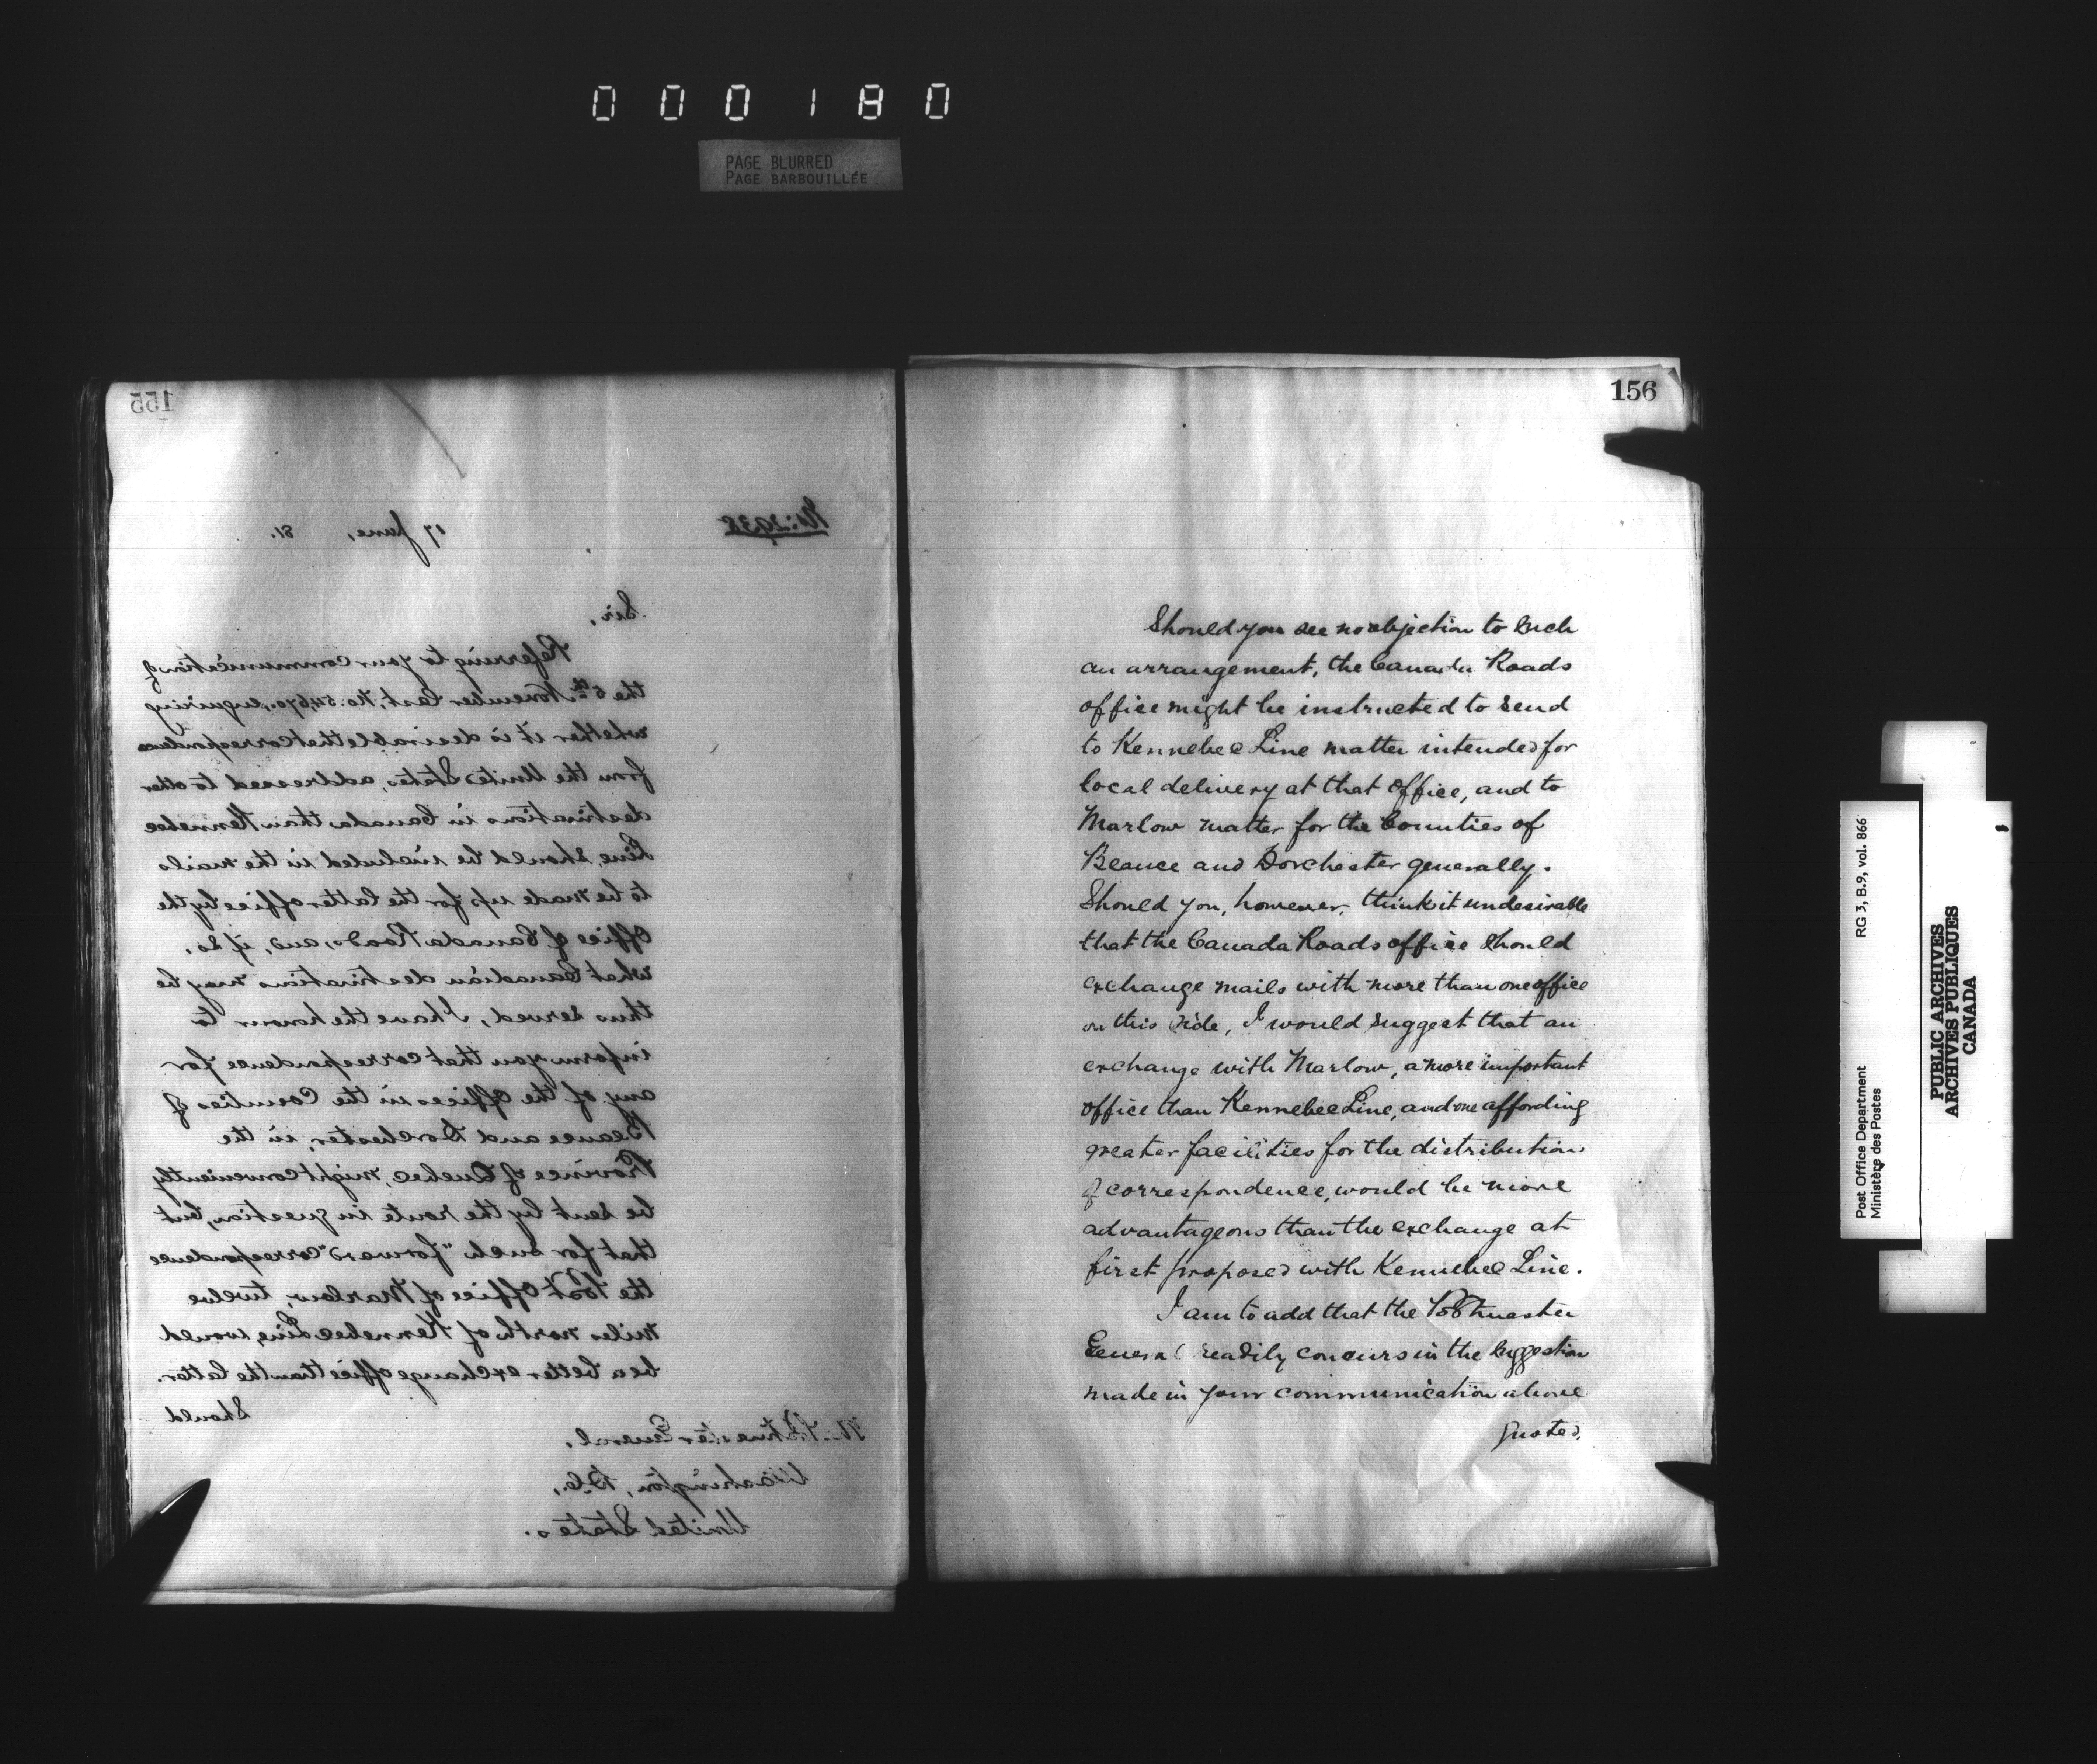 000180
PAGE BLURRED
PAGE BARBOUILLÉE
155
17 June, 81.
Sir,
Referring to your communication of
the 6th November last, No. 54,670, enquiring
whether it is desirable that correspondence
from the United States, addressed to other
destinations in Canada than Kennebec
Line, should be included in the mails
to be made up for the latter office by the
Office of Canada Roads, and, if so,
what Canadian destinations may be
thus served, I have the honour to
inform you that correspondence for
any of the Offices in the Counties of
Beauce and Dorchester, in the
Province of Quebec, might conveniently
be sent by the route in question, but
that for such "forward" correspondence
the Post Office of Marlow, twelve
miles north of Kennebec Line, would
be a better exchange office than the latter.
Should
Postmaster General,
Washington, D.C.,
United States.
156
Should you see no objection to such
an arrangement, the Canada Roads
office might be instructed to send
to Kennebec Line matter intended for
local delivery at that office, and to
Marlow matter for the Counties of
Beauce and Dorchester generally.
Should you, however, think it undesirable
that the Canada Roads office should
exchange mails with more than one office
on this side, I would suggest that an
exchange with Marlow, a more important
office than Kennebec Line, and one affording
greater facilities for the distribution
of correspondence, would be more
advantageous than the exchange at
first proposed with Kennebec Line.
I am to add that the Postmaster
General readily concurs in the suggestion
made in your communication above
quoted,
Post Office Department RG 3, B.9, vol. 866
Ministère des Postes
PUBLIC ARCHIVES
ARCHIVES PUBLIQUES
CANADA